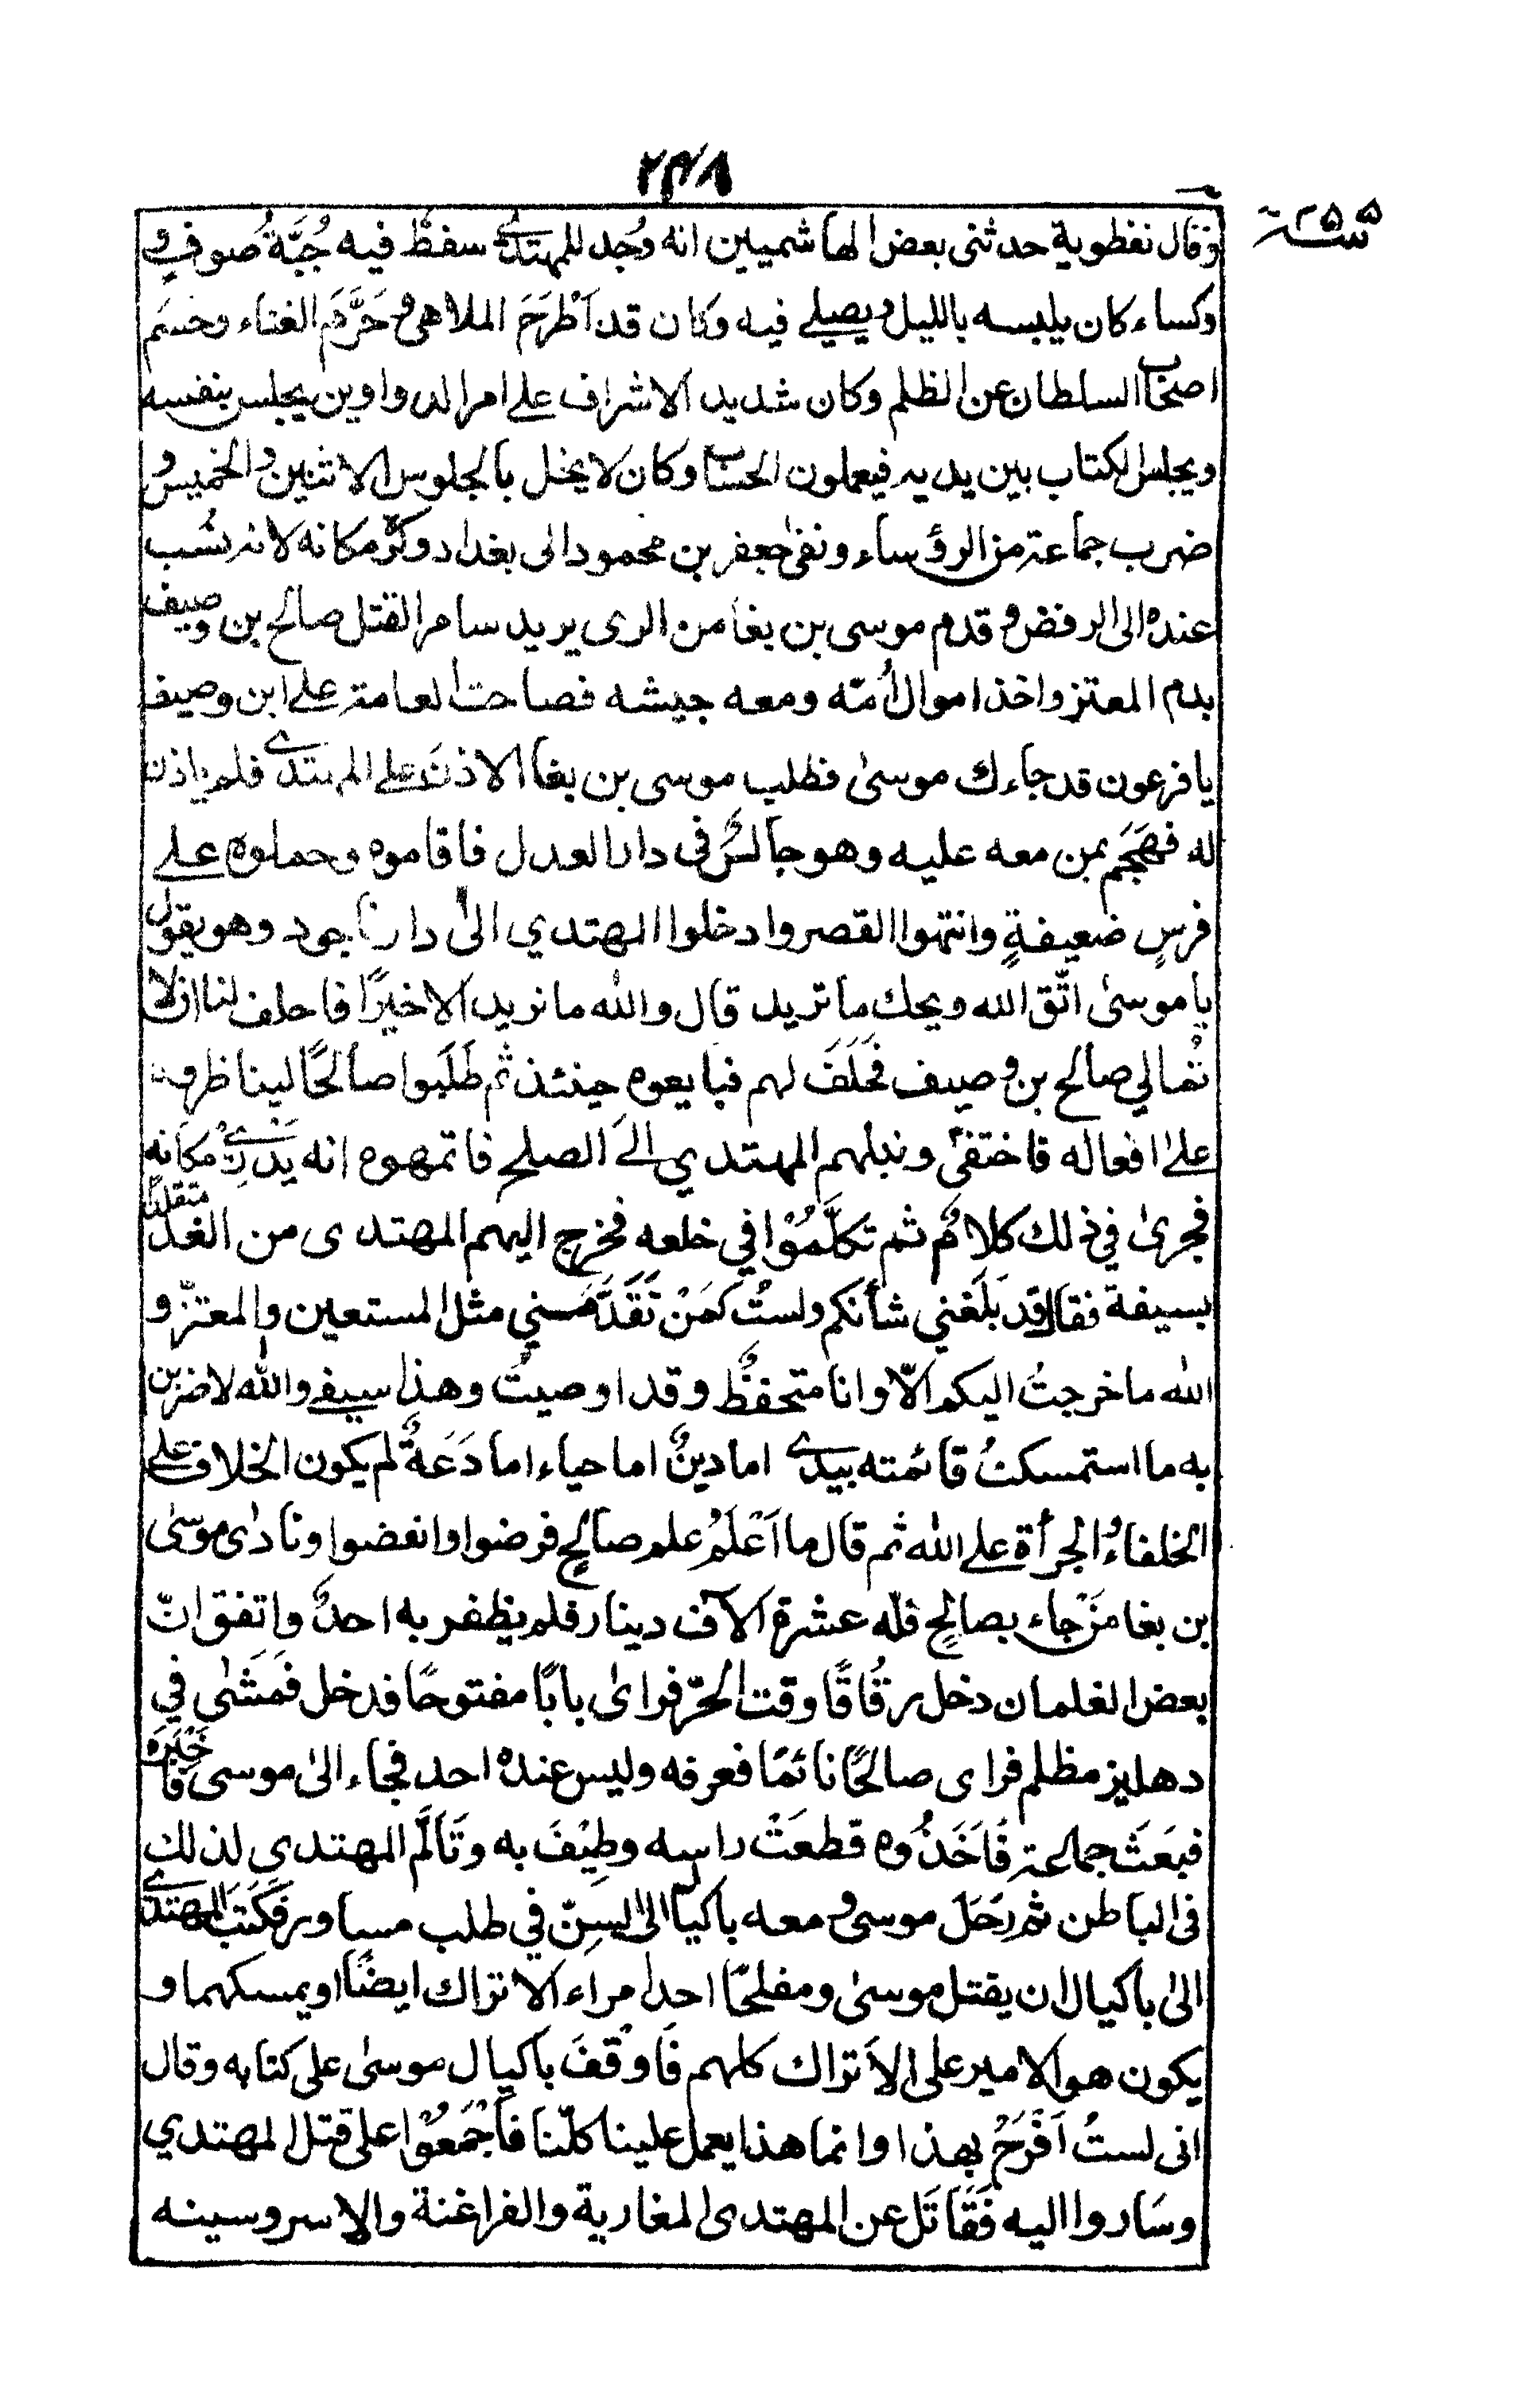 ٢٣٨
سنة ٢٥٥
وقال نفطوية حدثنى بعض الهاشميين انه وُجد للمهتدي سفطٌ فيه جُبَّةُ صُوفٍ و
وكساء كان يلبسه بالليل ويصلي فيه وكان قد اَطْرَحَ الملاهى وحَرَّمَ الغناء وحسم
اصحاب السلطان عن الظلم وكان شديد الاشراف على امر الدواوين يجلس بنفسه
ويجلس الكتاب بين يديه فيعملون الحساب وكان لا يخل بالجلوس الاثنين والخميس و
ضرب جماعة من الرؤساء ونفى جعفر بن محمود الى بغداد وكره مكانه لانه نسب
عنده الى الرفض وقدم موسى بن بغا من الرى يريد سامرا لقتل صالح بن وصيف
بدم المعتز واخذ اموال اُمّه ومعه جيشه فصاحت العامة على ابن وصيف
يا فرعون قد جاءك موسىٰ فطلب موسى بن بغا الاذنَ على المهتدي فلم ياذن
له فهَجَم بمن معه عليه وهو جالسٌ فى دار العدل فاقاموه وحملوه على
فرسٍ ضعيفةٍ وانتهوا القصر وادخلوا المهتدي الىٰ دار ناجود وهو يقول
يا موسىٰ اتّق الله ويحك ما تريد قال والله ما نريد الا خيرًا فاحلف لنا ان لا
تمالي صالح بن وصيف فحَلَفَ لهم فبايعوه حينئذ ثم طَلَبوا صالحًا ليناظروه
علىٰ افعاله فاختفىٰ وندبهم المهتدي الىَ الصلح فاتهموه انه يَدْرِيْ مكانه
فجرىٰ في ذلك كلامٌ ثم تكلَّمُوْا في خلعه فخرج اليهم المهتدى من الغد متقلدًا
بسيفه فقال قد بَلَغني شأنكم ولستُ كَمَنْ تَقَدَّمَني مثل المستعين والمعتزّ و
الله ما خرجتُ اليكم الّا وانا متحفظٌ وقد اوصيتُ وهذا سيفي والله لاضربن
به ما استمسكتُ قائمته بيدي اما دينٌ اما حياء اما دَعَةٌ لم يكون الخلاف على
الخلفاءُ والجرأة على الله ثم قال ما اَعْلَمُ علم صالحٍ فرضوا وانفضوا ونادى موسىٰ
بن بغا مَنْ جاء بصالحٍ فلّه عشرة الآف دينار فلم يظفر به احدٌ واتفق انّ
بعض الغلمان دخل زقُاقًا وقت الحرّ فراىٰ بابًا مفتوحًا فدخل فَمَشٰى في
دهليز مظلم فراى صالحًا نائمًا فعرفه وليس عنده احد فجاء الىٰ موسى فاَخْبَرَه
فبَعَثَ جماعة فَاَخَذُوه قطعَتْ راسه وطِيْفَ به وتَاَلَّم المهتدي لذلك
فى الباطن ثم رَحَلَ موسى ومعه باكيال الىٰ السِنّ في طلب مساور فَكَتَبَ المهتدي
الىٰ باكيال ان يقتل موسىٰ ومفلحًا احد امراء الاتراك ايضًا او يمسكهما و
يكون هو الامير على الاَتراك كلهم فَاَوْقَفَ باكيال موسىٰ على كتابه وقال
انى لستُ اَفْرَحُ بهذا وانما هذا يعمل علينا كلّنا فاَجْمَعُوْا على قتل المهتدي
وسَاروا اليه فَقَاتَل عن المهتدى المغاربة والفراغنة والاسروسينه